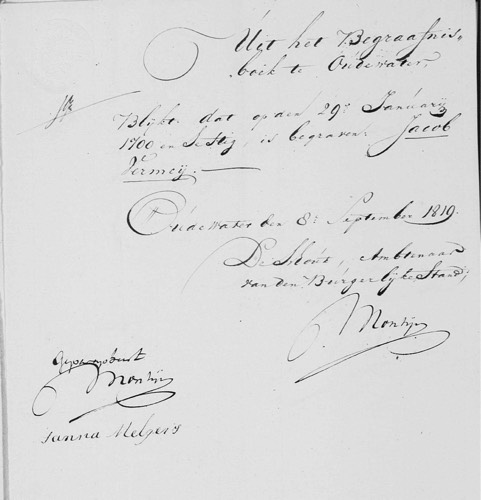 Uit het Begraafnis„
boek te Oudewater,
Blijkt dat op den 29e Januarij
1700 en Sestig, is begraven Jacob
Vermeij. —
Oudewater den 8e September 1819.
De Schout, Ambtenaar
van den Burgerlijke Stand,
Montijn
Geparapheert
Montijn
Janna Melpers